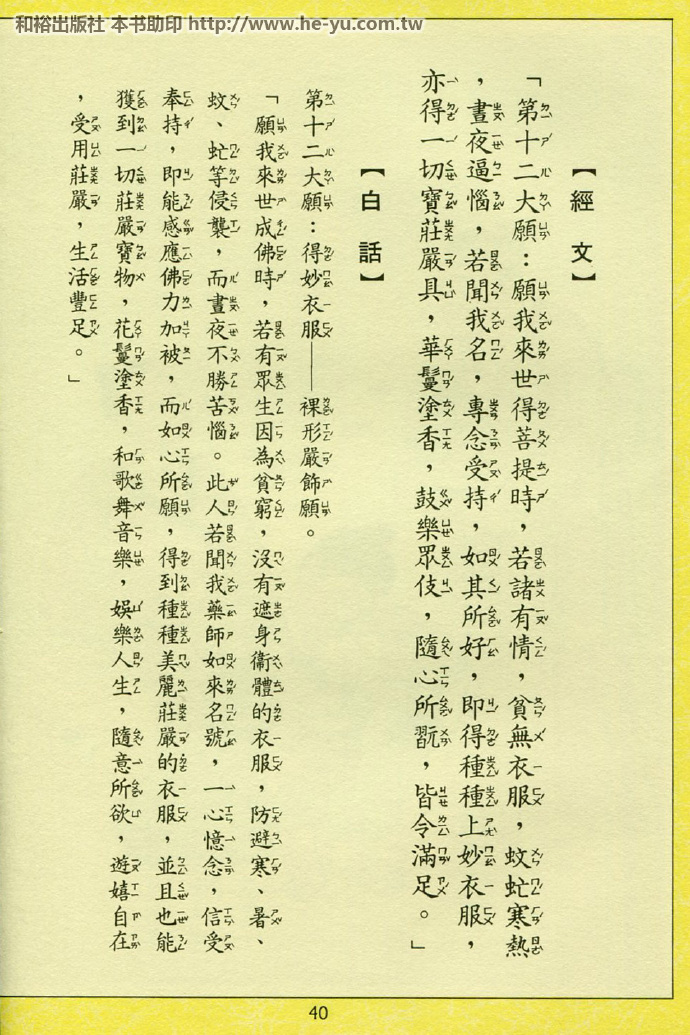 和裕出版社 本书助印 http://www.he-yu.com.tw
【經文】
「第十二大願：願我來世得菩提時，若諸有情，貧無衣服，蚊虻寒熱
，晝夜逼惱，若聞我名，專念受持，如其所好，即得種種上妙衣服，
亦得一切寶莊嚴具，華鬘塗香，鼓樂眾伎，隨心所翫，皆令滿足。」
【白話】
第十二大願：得妙衣服——裸形嚴飾願。
「願我來世成佛時，若有眾生因為貧窮，沒有遮身衞體的衣服，防避寒、暑、
蚊、虻等侵襲，而晝夜不勝苦惱。此人若聞我藥師如來名號，一心憶念，信受
奉持，即能感應佛力加被，而如心所願，得到種種美麗莊嚴的衣服，並且也能
獲到一切莊嚴寶物，花鬘塗香，和歌舞音樂，娛樂人生，隨意所欲，遊嬉自在
，受用莊嚴，生活豐足。」
40